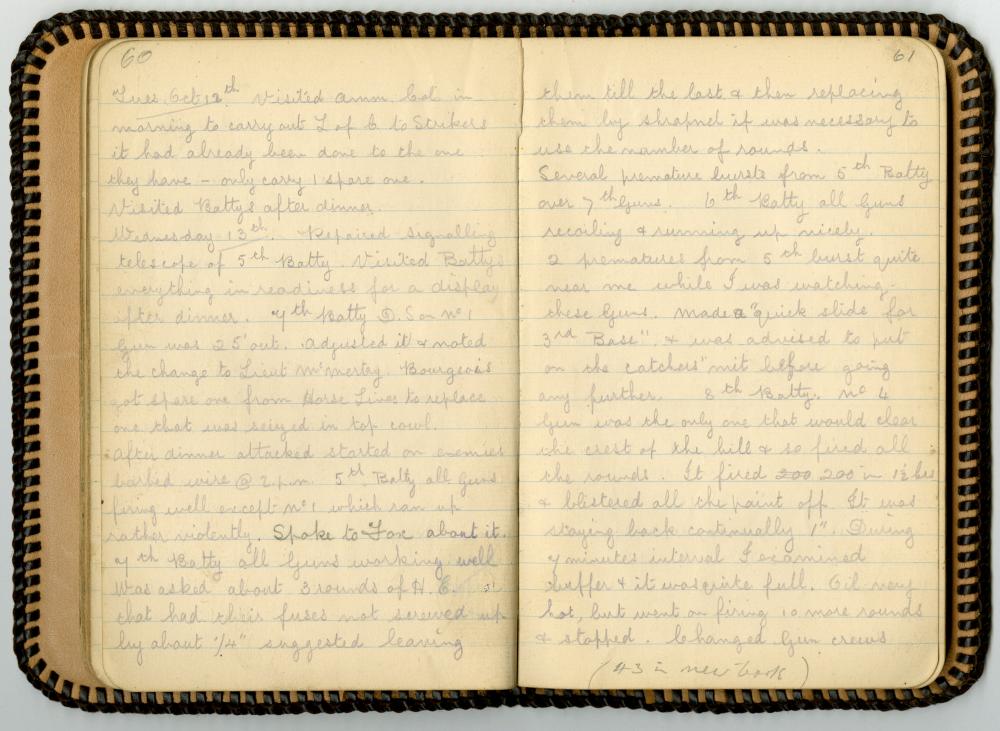 60
Tues. Oct 12th Visited Amm. Col. in
morning to carry out I of G to Strikers
it had already been done to the one
they have - only carry 1 spare one.
Visited Battys after dinner.
Wednesday 13th. Repaired signalling
telescope of 5th Batty. Visited Battys
everything in readiness for a display
after dinner. 7th Batty D. S on No 1
Gun was 25' out. Adjusted it & noted
the change to Lieut Bourgeois
got spare one from Horse Lines to replace
one that was seized in top cowl.
After dinner attacked started on enemies
barbed wire @ 2 p.m. 5th Batty all Guns
firing well except No 1 which ran up
rather violently. Spoke to Fox about it.
7th Batty all Guns working well
Was asked about 3 rounds of H. E.
that had their fuses not screwed up
by about 1/4" suggested leaving
61
them till the last & then replacing
them by shrapnel if was necessary to
use the number of rounds.
Several premature bursts from 5th Batty
over 7th Guns. 6th Batty all Guns
recoiling & running up nicely.
2 prematures from 5th burst quite
near me while I was watching
these Guns. Made a "quick slide for
3rd Base" & was advised to put
on the catchers" mit before going
any further. 8th Batty. No 4
Gun was the only one that would clear
the crest of the hill & so fired all
the rounds. It fired 200 200 in 1½ hrs
& blistered all the paint off. It was
staying back continually 1". During
7 minutes interval I examined
buffer & it was quite full. Oil very
hot, but went on firing 10 more rounds
& stopped. Changed Gun crews
(43 in new book)